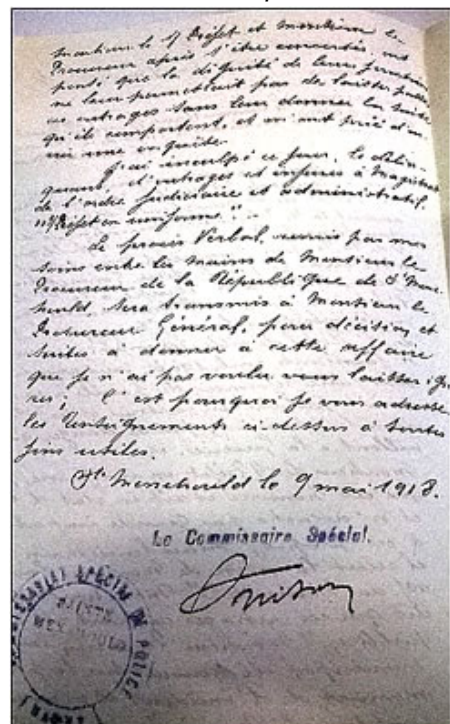 Monsieur le S/Préfet et Monsieur le
Procureur après s'être concertés, ont
pensé que la dignité de leurs fonctions
ne leur permettait pas de laisser passer
ces outrages sans leur donner la suite
qu'ils comportent, et m'ont prié d'ou-
vrir une enquête.
J'ai inculpé ce jour, le délin-
quant, d'outrages et injures à Magistrat
de l'ordre judiciaire et administratif,
S/Préfet en uniforme". -
Le procès Verbal, remis par mes
soins entre les mains de Monsieur le
Procureur de la République de Ste Mene-
hould, sera transmis à Monsieur le
Procureur Général, pour décision et
suites à donner à cette affaire
que je n'ai pas voulu vous laisser igno-
rer; C'est pourquoi je vous adresse
les renseignements ci-dessus à toutes
fins utiles.
Ste Menehould le 9 mai 1918.
Le Commissaire Spécial.
COMMISSARIAT SPÉCIAL DE POLICE
SAINTE
MENEHOULD